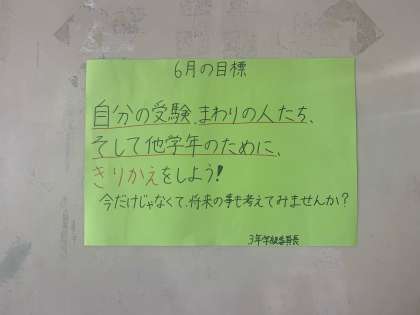 6月の目標
自分の受験、まわりの人たち、
そして他学年のために、
きりかえをしよう!
今だけじゃなくて、将来の事も考えてみませんか?
3年学級委員長